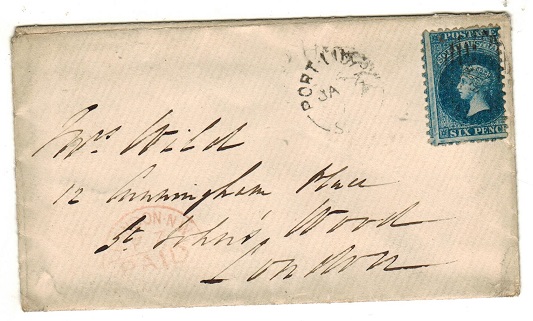 POSTAGE
SIX PENCE
PORT·LINCOLN
JA
S
Mrs Wild
12 Cunningham Place
St John's Wood
London
LONDON·N
PAID